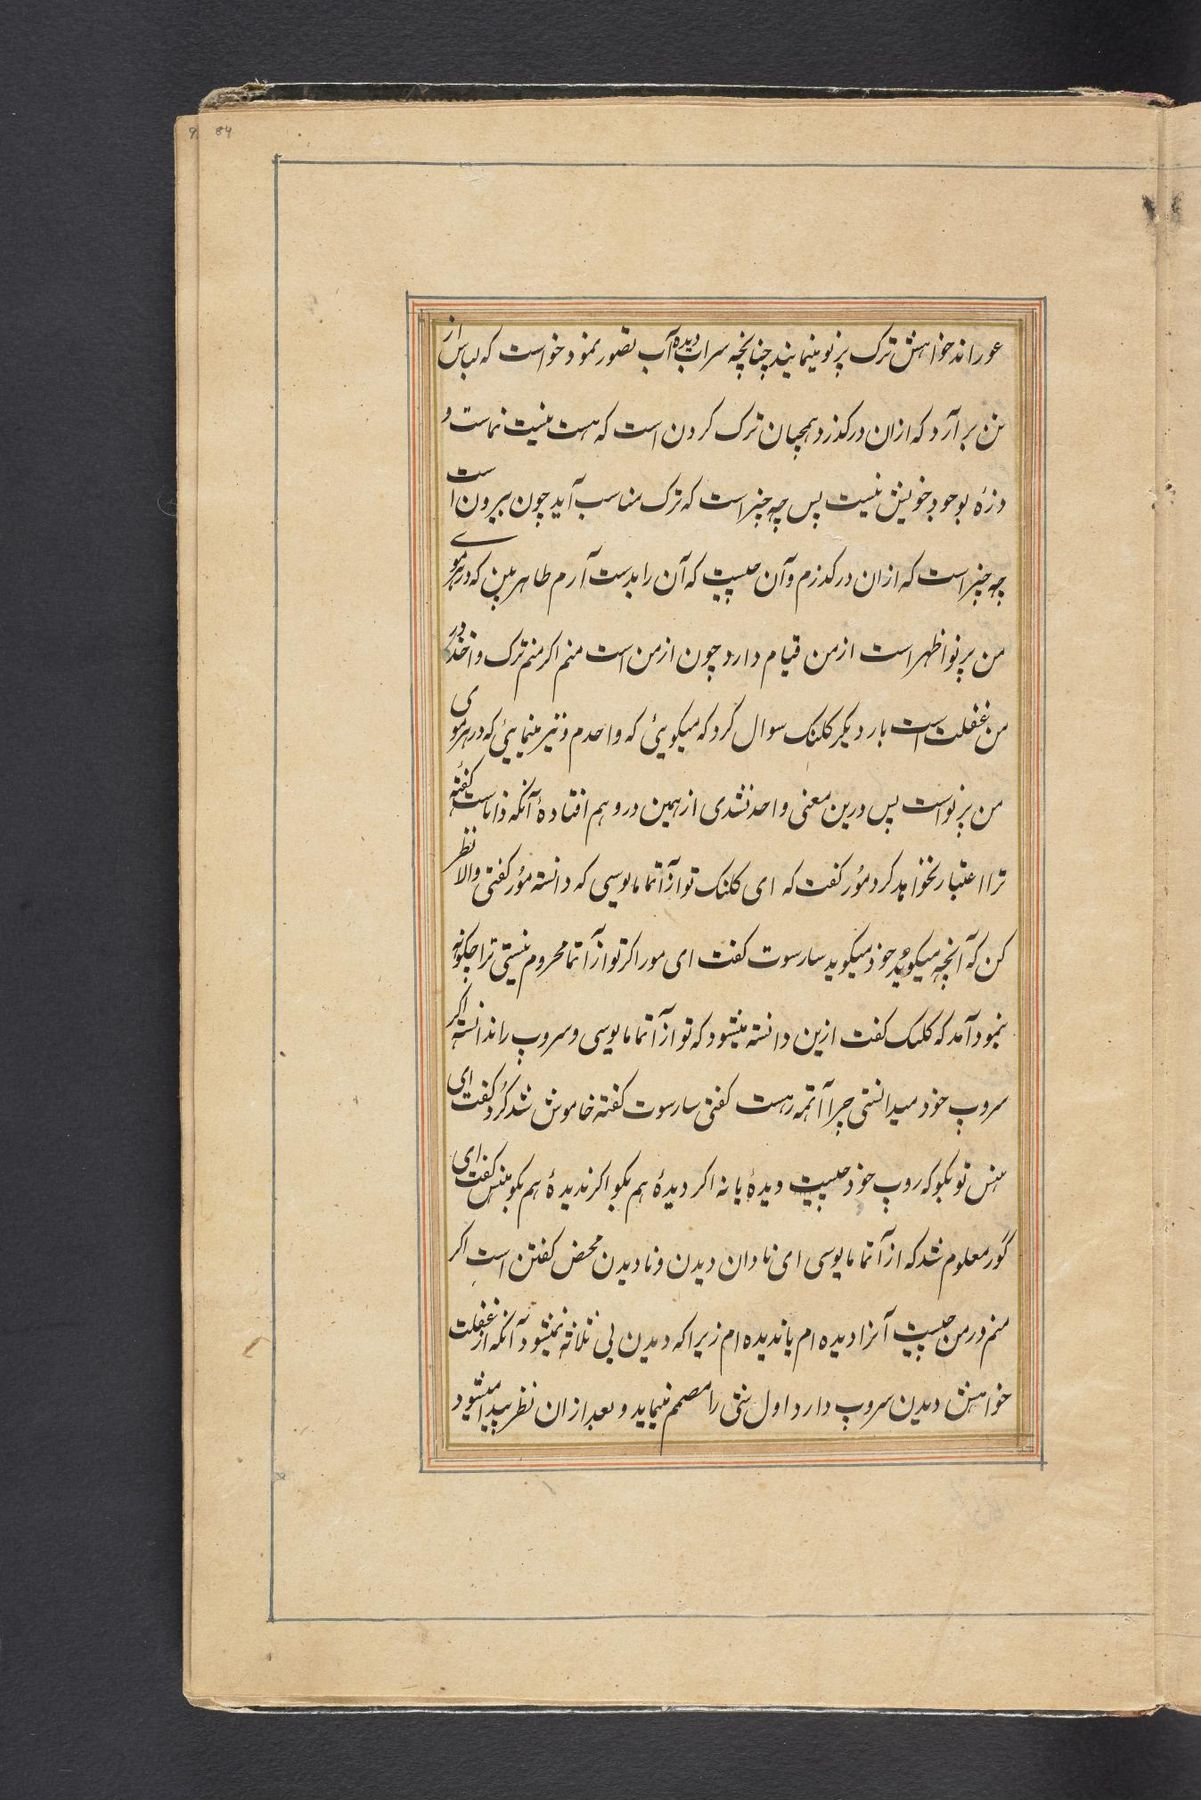 9 84
عوراند خواهش ترک پرنو مینمایند چنانچه سراب دیده آب تصور نمود خواست که لباس از
تن برآرد که ازان درکذرد همچنان ترک کردن است که هست نیست نماست و
ذرهٔ بوجود خویش نیست پس چه چیز است که ترک مناسب آید چون بیرون است
چه چیز است که ازان درکذرم و آن چیست که آن را بدست آرم ظاهر ببین که در هر موی
من پرنو اظهر است ازمن قیام دارد چون ازمن است منم اکر منم ترک و اخذ در
من غفلت است بار دیکر کلنک سوال کرد که میکویئ که واحدم و نیز مینمایئ که در هر موی
من پرنو است پس درین معنی واحد نشدی از همین در وهم افتادهٔ آنکه دانا ست کفتهٔ
ترا اعتبار نخواهد کرد مور کفت که ای کلنک تو از آتما مایوسی که دانسته مور کفتی والا نظر
کن که آنچه میکوید خود میکوید سارسوت کفت ای مور اکر تو از آتما محروم نیستی ترا چکونه
نمود آمد که کلنک کفت ازین دانسته میشود که تو از آتما مایوسی و سروپ را ندانستهٔ اکر
سروپ خود میدانستی چرا آتمه رهست کفتی سارسوت کفته خاموش شد کرد کفت ای
هنس تو بکو که روپ خود چیست دیدهٔ یا نه اکر دیدهٔ هم بکو اکر ندیدهٔ هم بکو هنس کفت ای
گور معلوم شد که از آتما مایوسی ای نادان دیدن و نادیدن محض کفتن است اکر
منم درمن چیست آنرا دیده ام یا ندیده ام زیرا که دیدن بی ثلاثه نمیشود آنکه از غفلت
خواهش دیدن سروپ دارد اول سنی را مصمم مینماید و بعد ازان نظر پیدا میشود